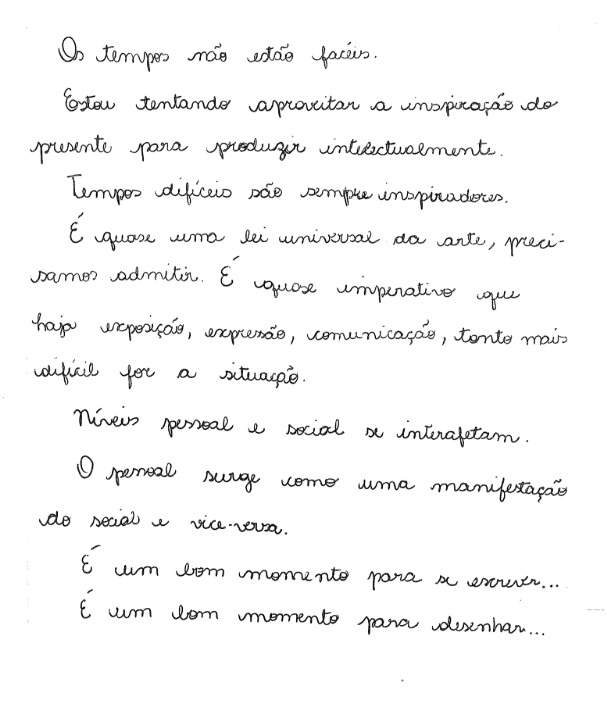 Os tempos não estão facéis.
Estou tentando aproveitar a inspiração do
presente para produzir intelectualmente.
Tempos difíceis são sempre inspiradores.
É quase uma lei universal da arte, preci-
samos admitir. É quase imperativo que
haja exposição, expressão, comunicação, tanto mais
difícil for a situação.
Níveis pessoal e social se interafetam.
O pessoal surge como uma manifestação
do social e vice-versa.
É um bom momento para se escrever...
É um bom momento para desenhar...